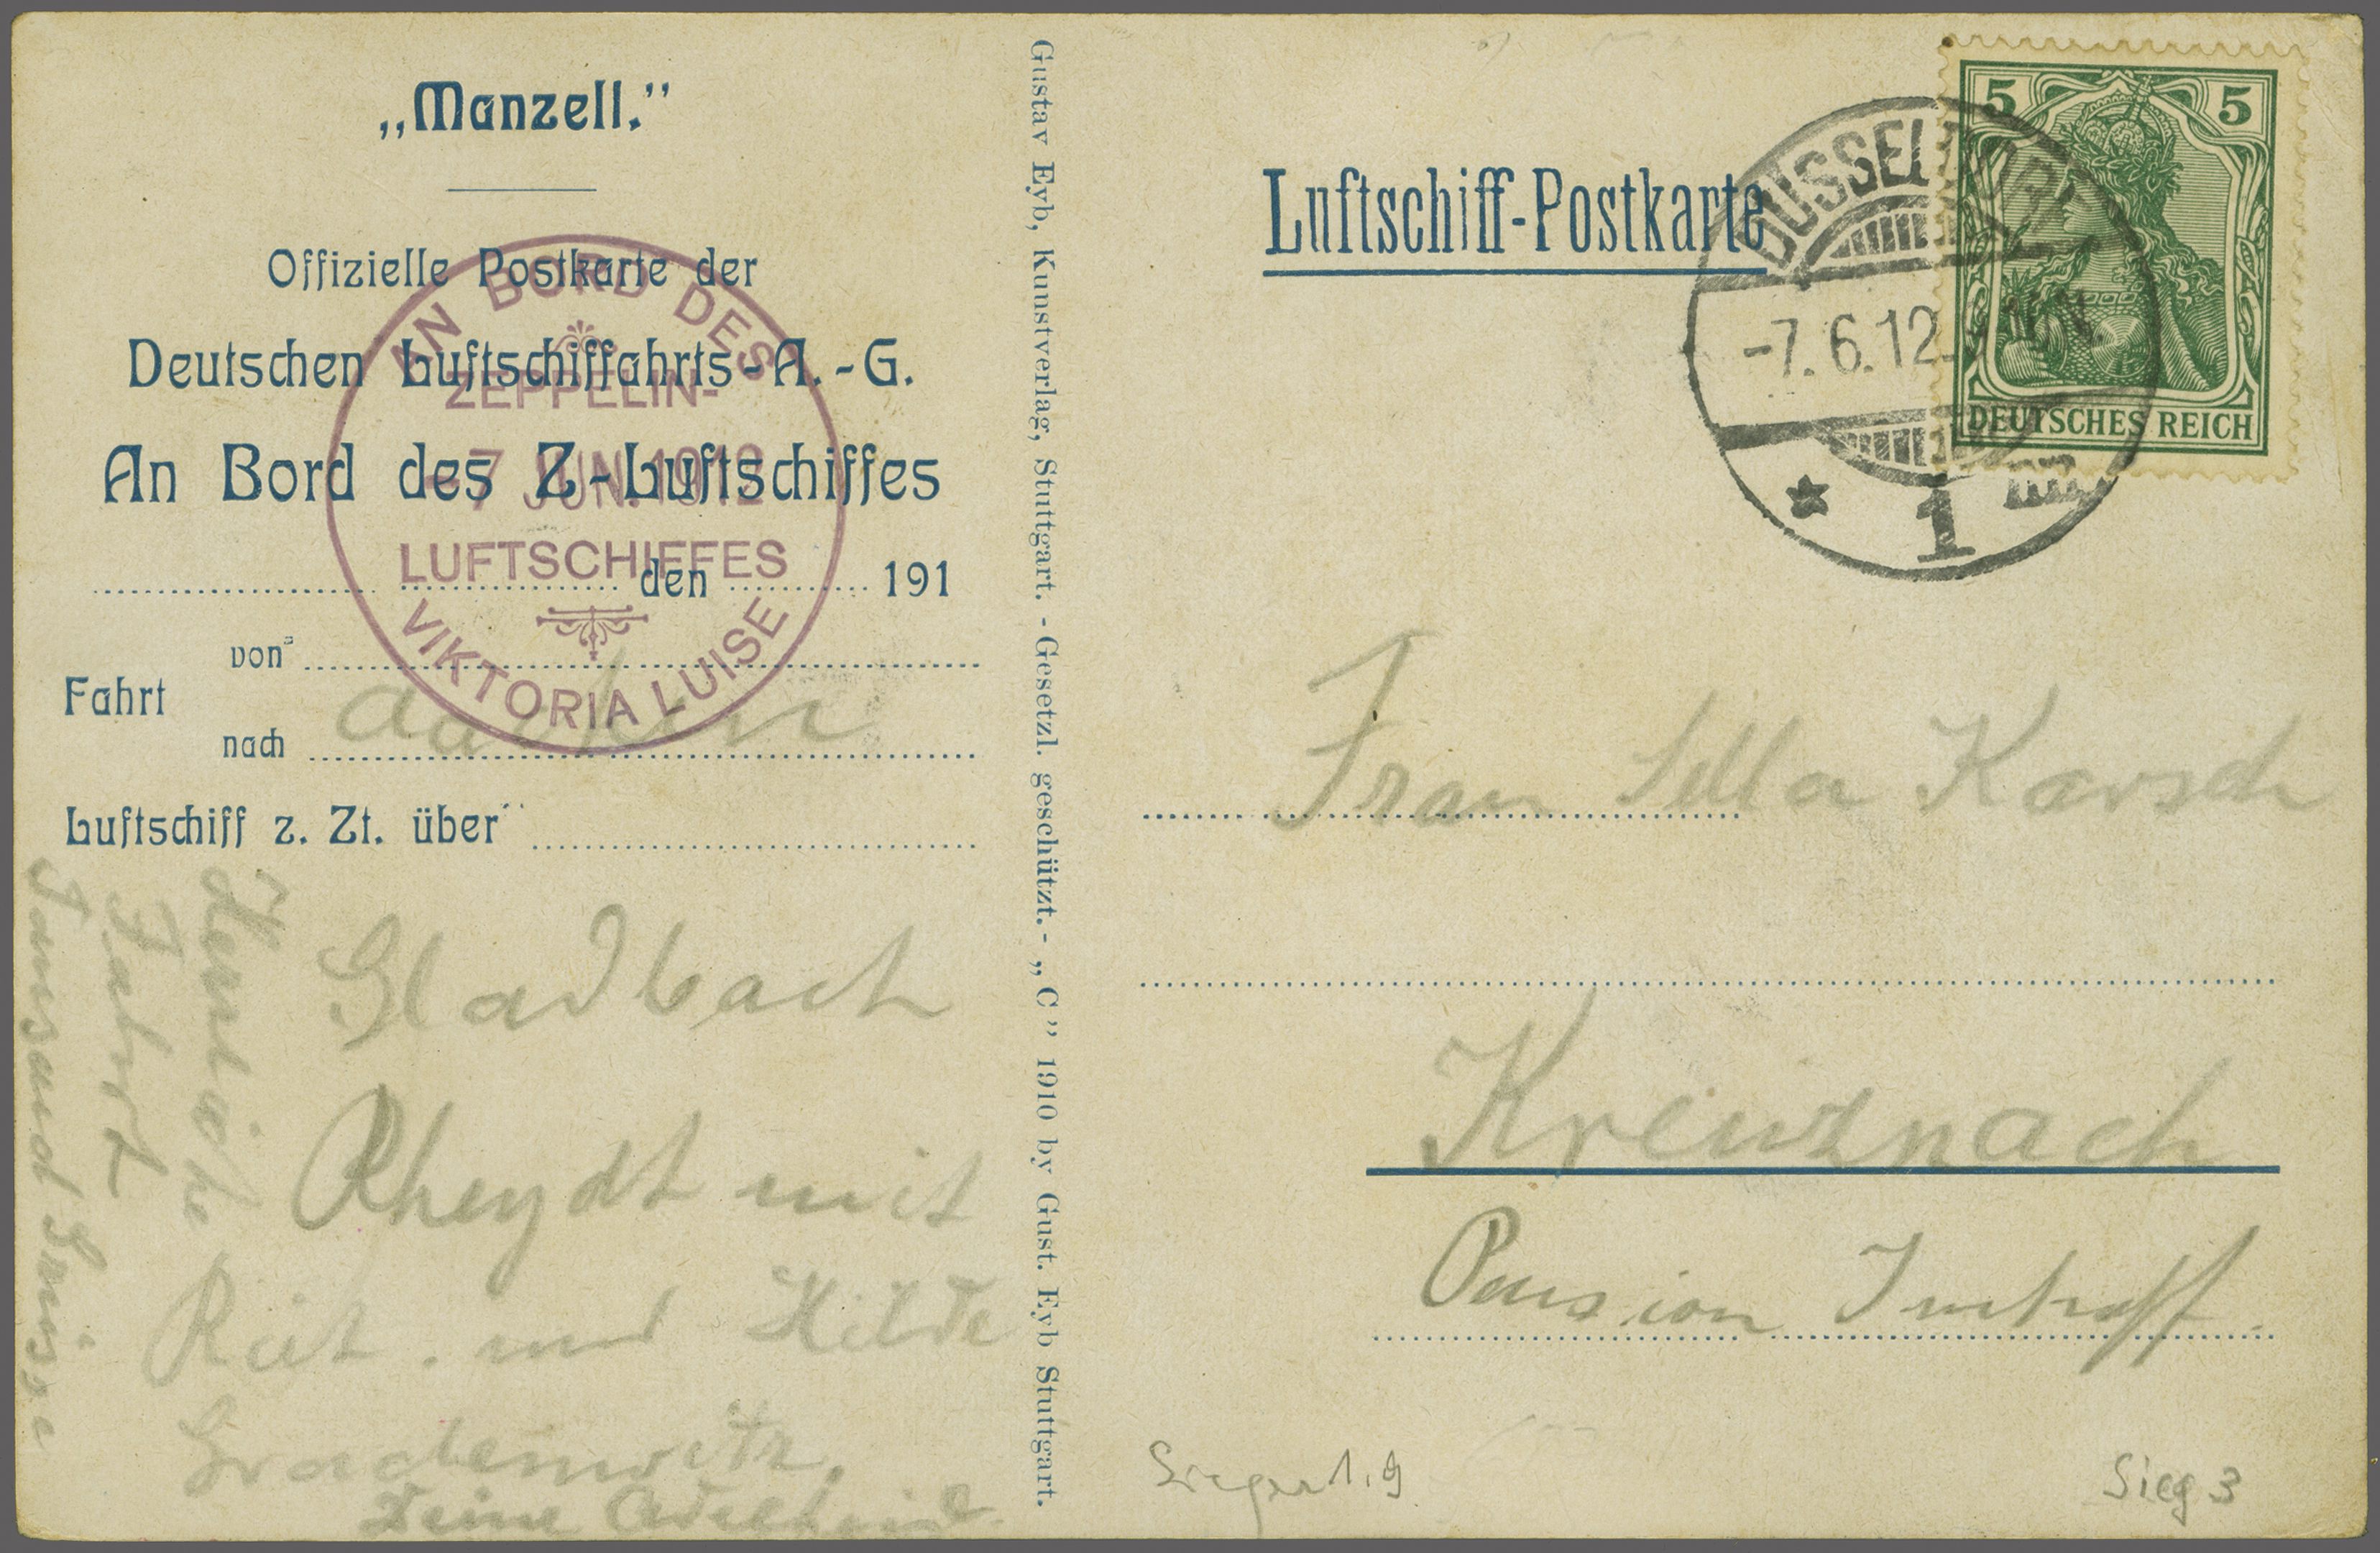 „Manzell.”
Offizielle Postkarte der
Deutschen Luftschiffahrts-A.-G.
An Bord des Z-Luftschiffes
den 191
Fahrt
von
nach Aachen
Luftschiff z. Zt. über
AN BORD DES
ZEPPELIN-
-7 JUN. 1912
LUFTSCHIFFES
VIKTORIA LUISE
Gladbach
Rheydt mit
und Hilde
Gradenwitz.
Deine Adelheid.
Herrliche
Fahrt
Tausend Grüsse
Gustav Eyb, Kunstverlag, Stuttgart. - Gesetzl. geschützt. - „C” 1910 by Gust. Eyb Stuttgart.
Luftschiff-Postkarte
DÜSSELDORF
-7.6.12.
* 1 m
5 5
DEUTSCHES REICH
Frau Karsch
Kreuznach
Pension Imhoff.
Sieger 1.9
Sieg 3